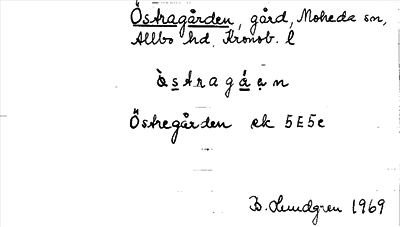 Östragården, gård, Moheda sn,
Allbo hd. Kronob. l
ùstragá̱ạn
Östregården ek 5E5e
B. Lundgren 1969